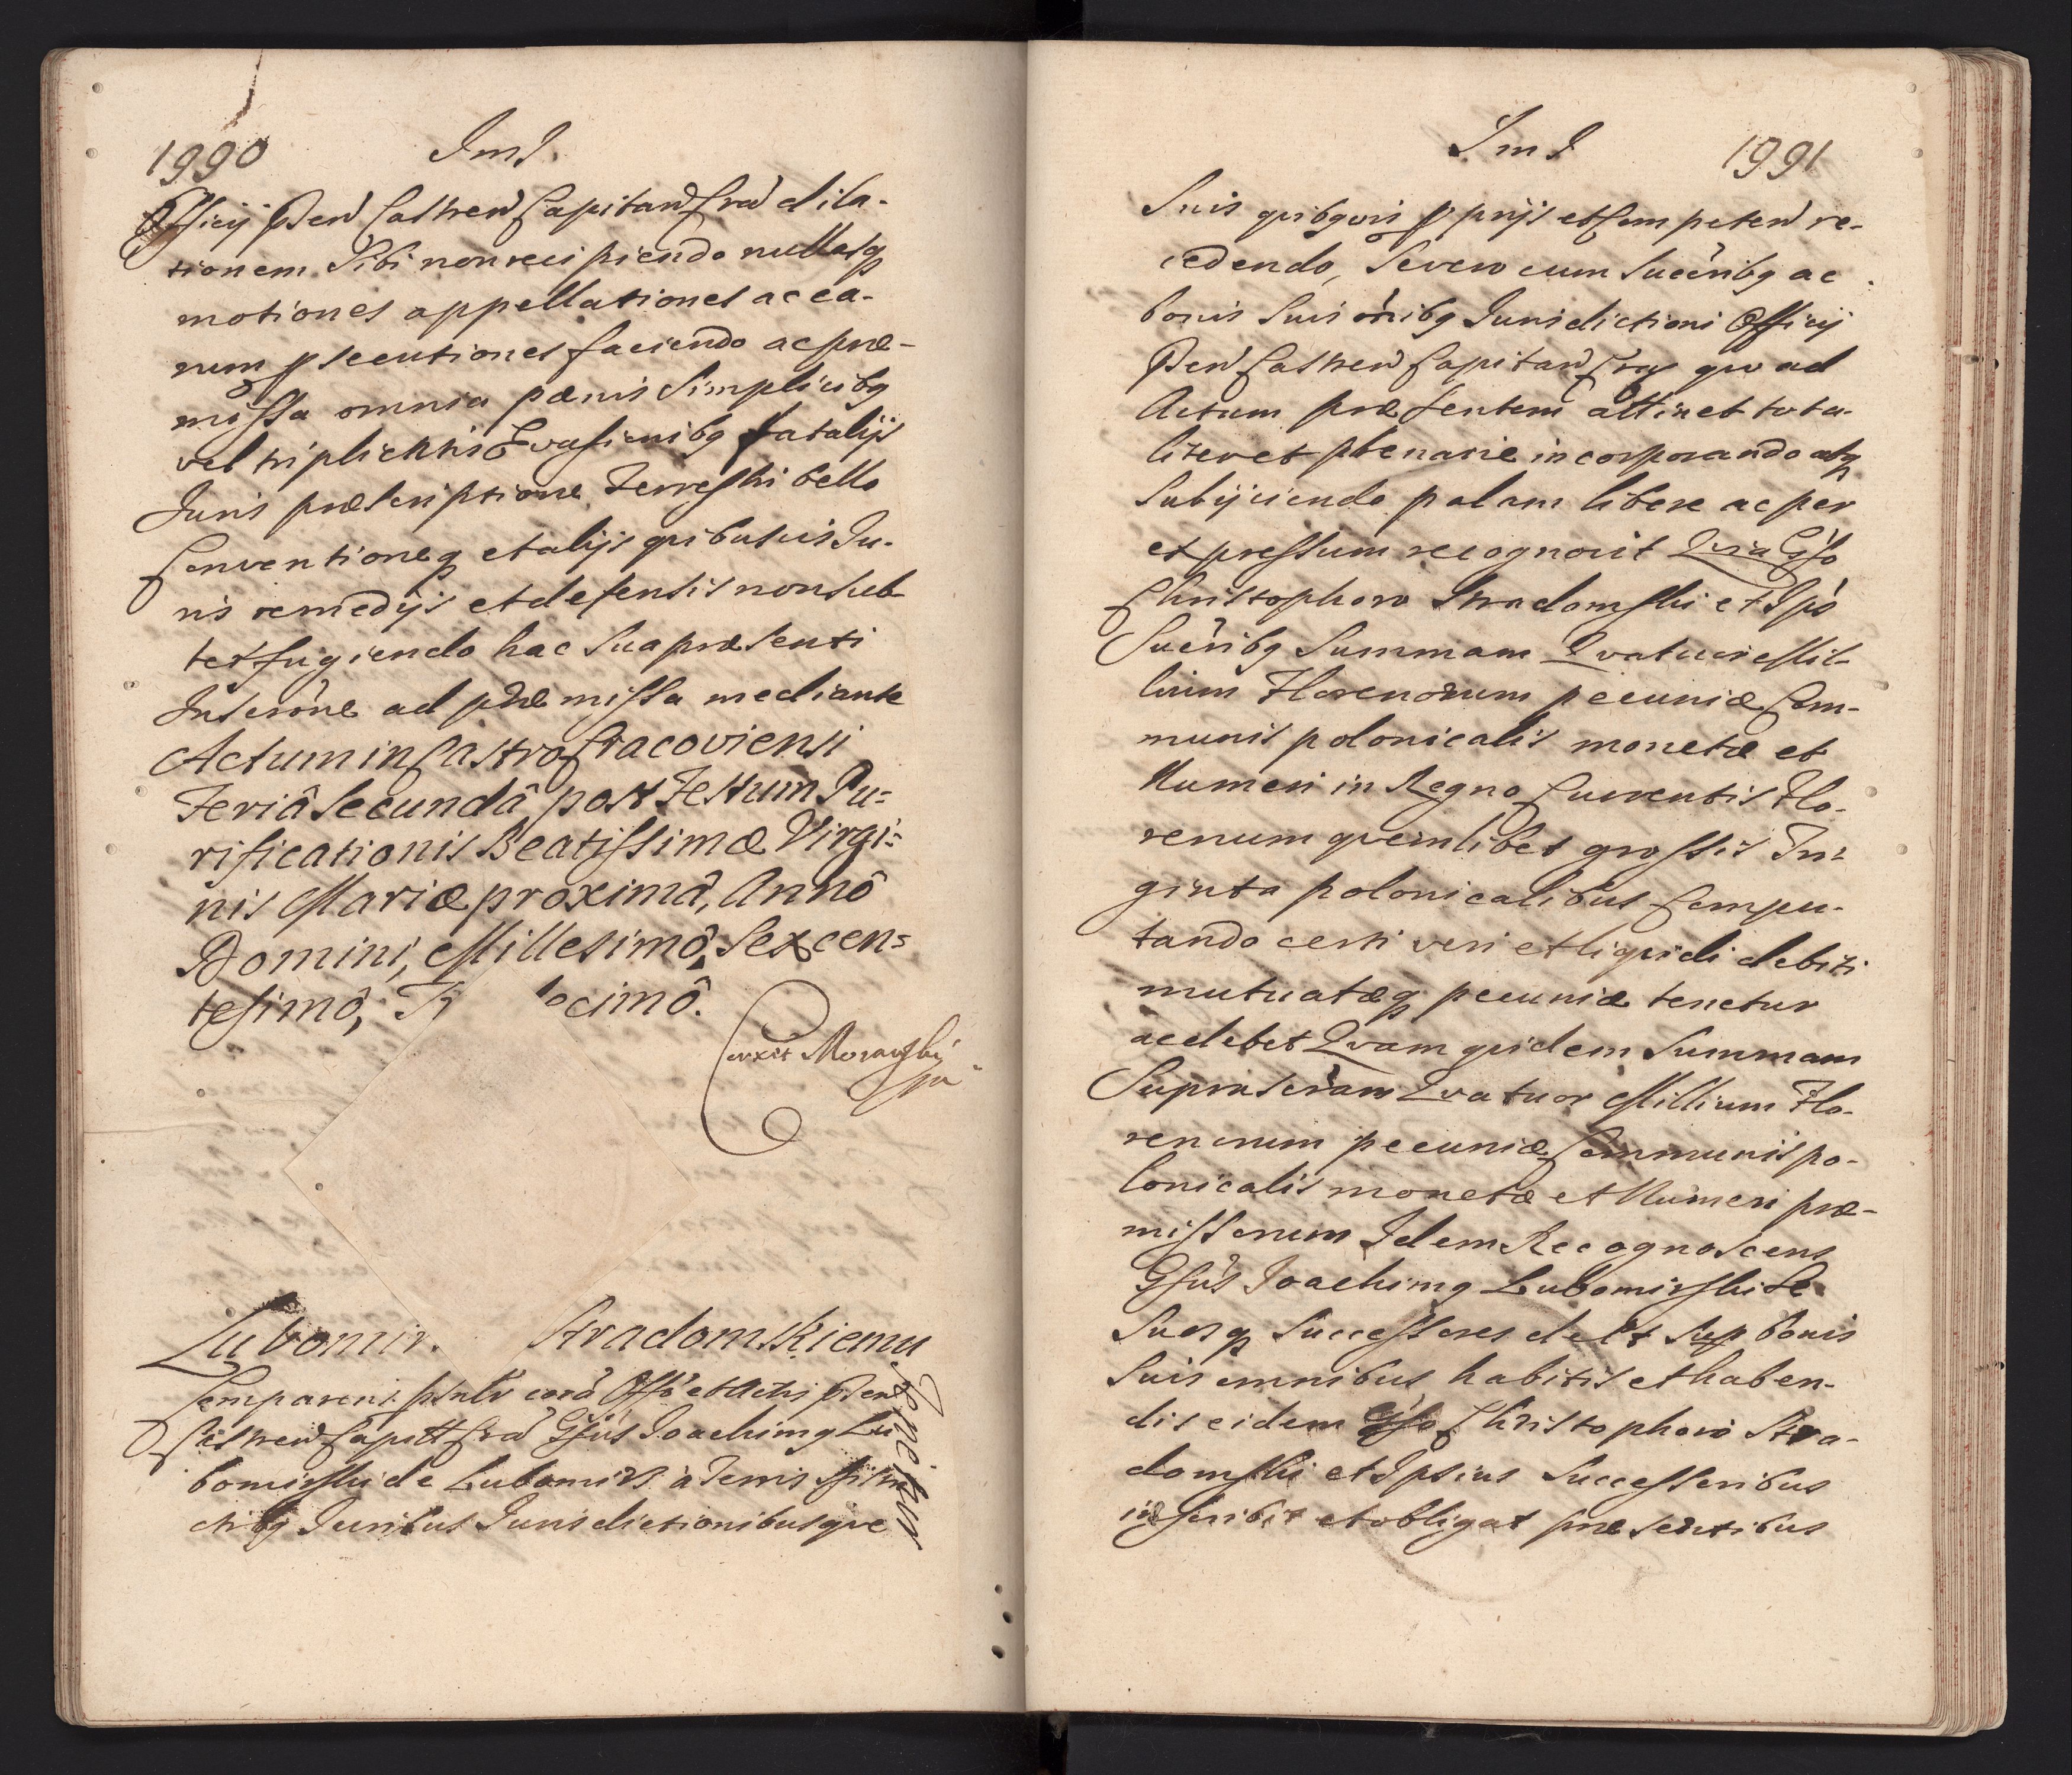 1990 ImI.
Officij Pnd Castren Capitan Cra dila-
tionem Sibi non recipiendo nullasq
motiones appellationes ac ea-
rum psecutiones faciendo ac præ-
missa omnia pænis Simplicibq
vel triplicibus Evasionibq fatalijs
Juris præscriptione Terrestri bello
Conventioneq et alijs quibusvis Ju-
ris remedijs et defensis non sub
terfugiendo hac Sua præsenti
Inscrône ad præmissa mediante
Actum in Castro Cracoviensi
Feriâ Secundâ post Festum Pu=
rificationis Beatissimæ Virgi=
nis Mariæ proximâ, Annô
Domini, Millesimô, Sexcen=
tesimô, ecimô.
Morawski
Lubomir. Stradomskiemu
Comparens psnlr corâ Offo et Actis Pnd
Castren Capitt Cra Gsus Joachimq Lu
bomirski de Lubomirz a Terris
ctibq Juribus Jurisdictionibusque
ImI 1991
Suis quibqvis pprijs et Competen re-
cedendo, Se vero cum Sucêribq ac
bonis Suis oîbq Jurisdictioni Officij
Pnd Castren Capitan Cra quo ad
Actum præsentem attinet tota-
liter et plenarie incorporando atq
Subijciendo palam libere ac per
expressum recognovit Quia Gso
Christophoro Stradomski et Ips
Sucêribq Summam Quatuor Mil-
lium Florenorum pecuniæ Com-
munis polonicalis monetæ et
Numeri in Regno Currentis Flo-
renum quemlibet grossis Tri-
ginta polonicalibus Compu-
tando certi veri et liquidi debiti
mutuatæq pecuniæ tenetur
ac debet Quam quidem Summam
Suprascram Quatuor Millium Flo-
renorum pecuniæ Communis po-
lonicalis monetæ et Numeri præ-
missorum Idem Recognoscens
Gsus Joachimq Lubomirski Se
Suosq Successores de et Sup bonis
Suis omnibus habitis et haben-
dis eidem Gso Christophoro Stra-
domski et Ipsius Successoribus
inscribit et obligat præsentibus